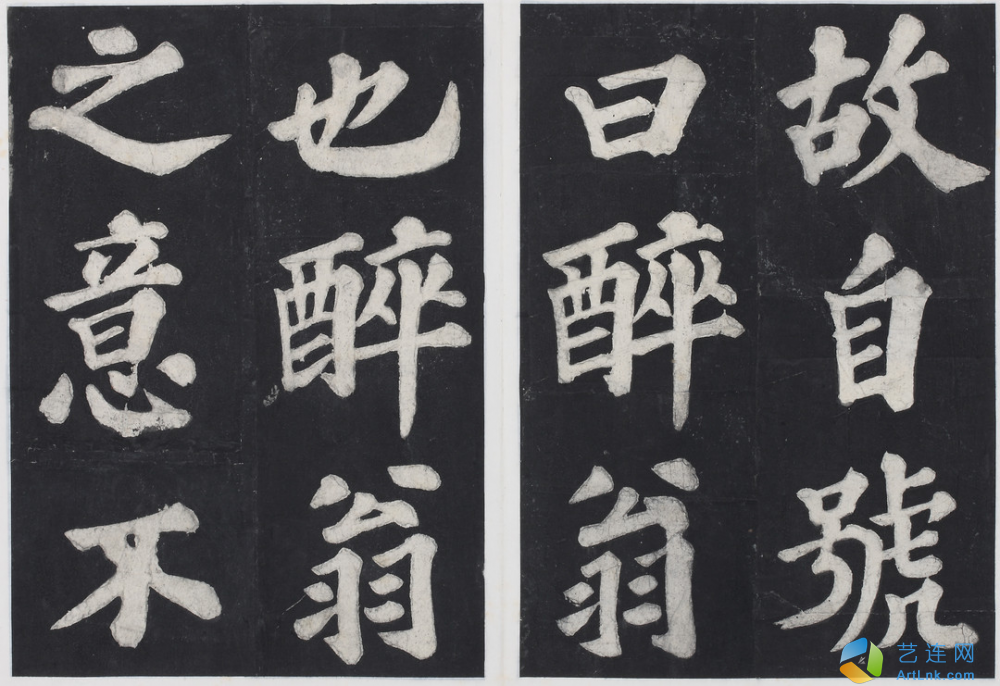 故自號
曰醉翁
也醉翁
之意不
艺连网
ArtLnk.com